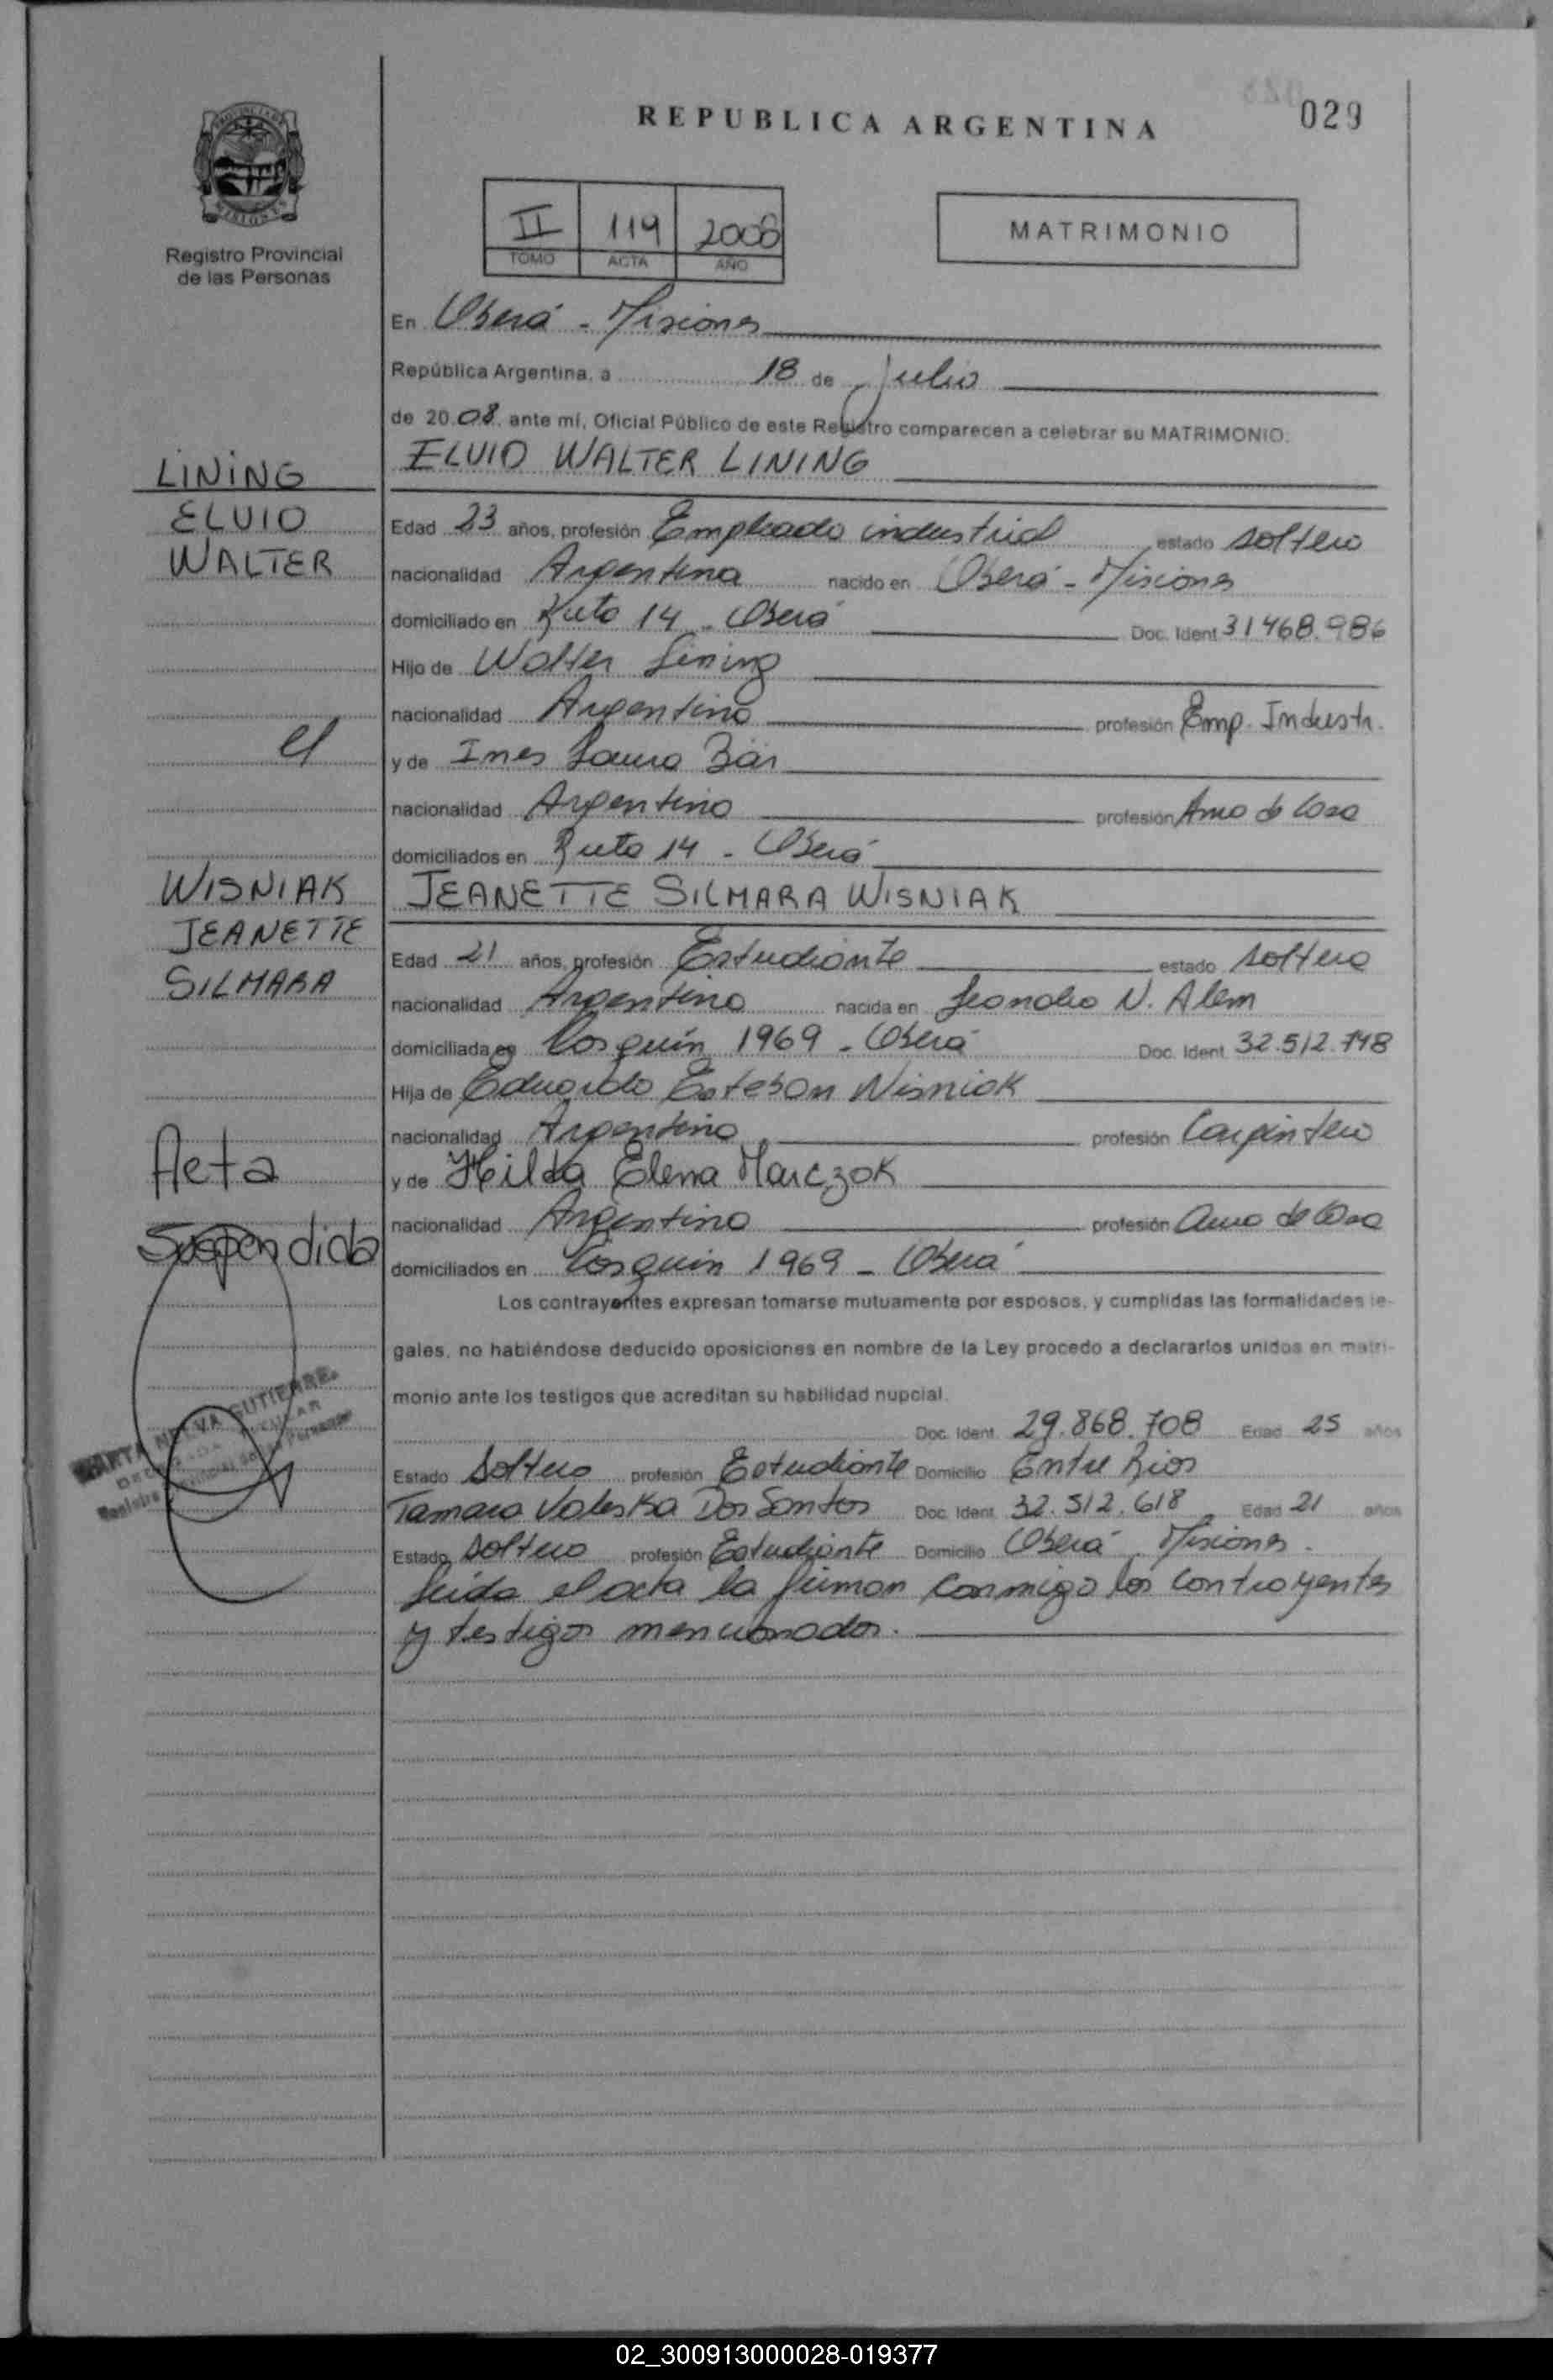 029
REPUBLICA ARGENTINA
Registro Provincial
de las Personas
II 119 2008
TOMO ACTA AÑO
MATRIMONIO
En Oberá - Misiones
República Argentina, a 18 de Julio
de 2008, ante mí, Oficial Público de este Registro comparecen a celebrar su MATRIMONIO:
LINING
ELUIO
WALTER
ELUIO WALTER LINING
Edad 23 años, profesión Empleado industrial estado soltero
nacionalidad Argentina nacido en Oberá - Misiones
domiciliado en Ruta 14 - Oberá Doc. Ident. 31468.986
Hijo de Walter Lining
nacionalidad Argentina profesión Emp. Industr.
y de Ines Laura Bär
nacionalidad Argentina profesión Ama de Casa
domiciliados en Ruta 14 - Oberá
WISNIAK
JEANETTE
SILMARA
JEANETTE SILMARA WISNIAK
Edad 21 años, profesión Estudiante estado soltera
nacionalidad Argentina nacida en Leandro N. Alem
domiciliada en Cosquín 1969 - Oberá Doc. Ident. 32.512.748
Hija de Eduardo Esteban Wisniak
nacionalidad Argentina profesión Carpintero
y de Hilda Elena Marczok
nacionalidad Argentina profesión Ama de Casa
domiciliados en Cosquin 1969 - Oberá
Acta
Suspendida
Los contrayentes expresan tomarse mutuamente por esposos, y cumplidas las formalidades le-
gales, no habiéndose deducido oposiciones en nombre de la Ley procedo a declararlos unidos en matri-
monio ante los testigos que acreditan su habilidad nupcial.
Doc. Ident. 29.868.708 Edad 25 años
Estado Soltero profesión Estudiante Domicilio Entre Rios
Tamara Valeska Dos Santos Doc. Ident. 32.512.618 Edad 21 años
Estado Soltera profesión Estudiante Domicilio Oberá Misiones.
Leída el acta la firman conmigo los contrayentes
y testigos mencionados.
02_300913000028-019377